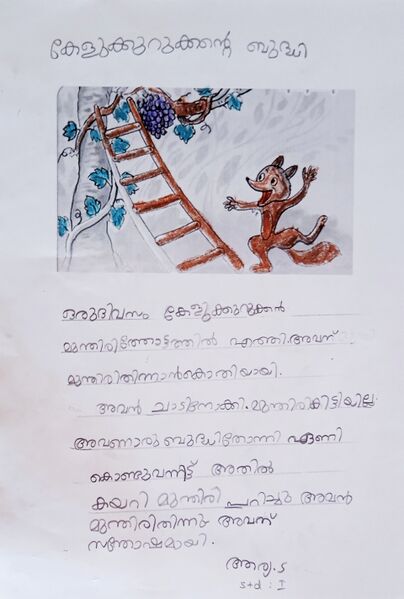 കേളുക്കുറുക്കന്റെ ബുദ്ധി
ഒരുദിവസം കേളുക്കുറുക്കൻ
മുന്തിരിത്തോട്ടത്തിൽ എത്തി.അവന്
മുന്തിരിതിന്നാൻകൊതിയായി.
അവൻ ചാടിനോക്കി.മുന്തിരികിട്ടിയില്ല
അവനൊരു ബുദ്ധിതോന്നി ഏണി
കൊണ്ടുവന്നിട്ട് അതിൽ
കയറി മുന്തിരി പറിച്ചു അവൻ
മുന്തിരിതിന്നു അവന്
സന്തോഷമായി.
ആര്യ.S
std : I